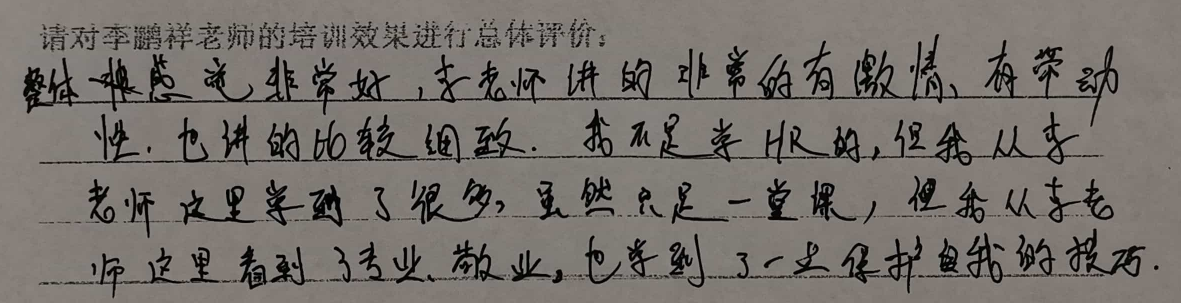 请对李鹏祥老师的培训效果进行总体评价:
整体感觉非常好,李老师讲的非常的有激情、有带动
性.也讲的比较细致.我不是学HR的,但我从李
老师这里学到了很多,虽然只是一堂课,但我从李老
师这里看到了专业、敬业,也学到了一些保护自我的技巧.